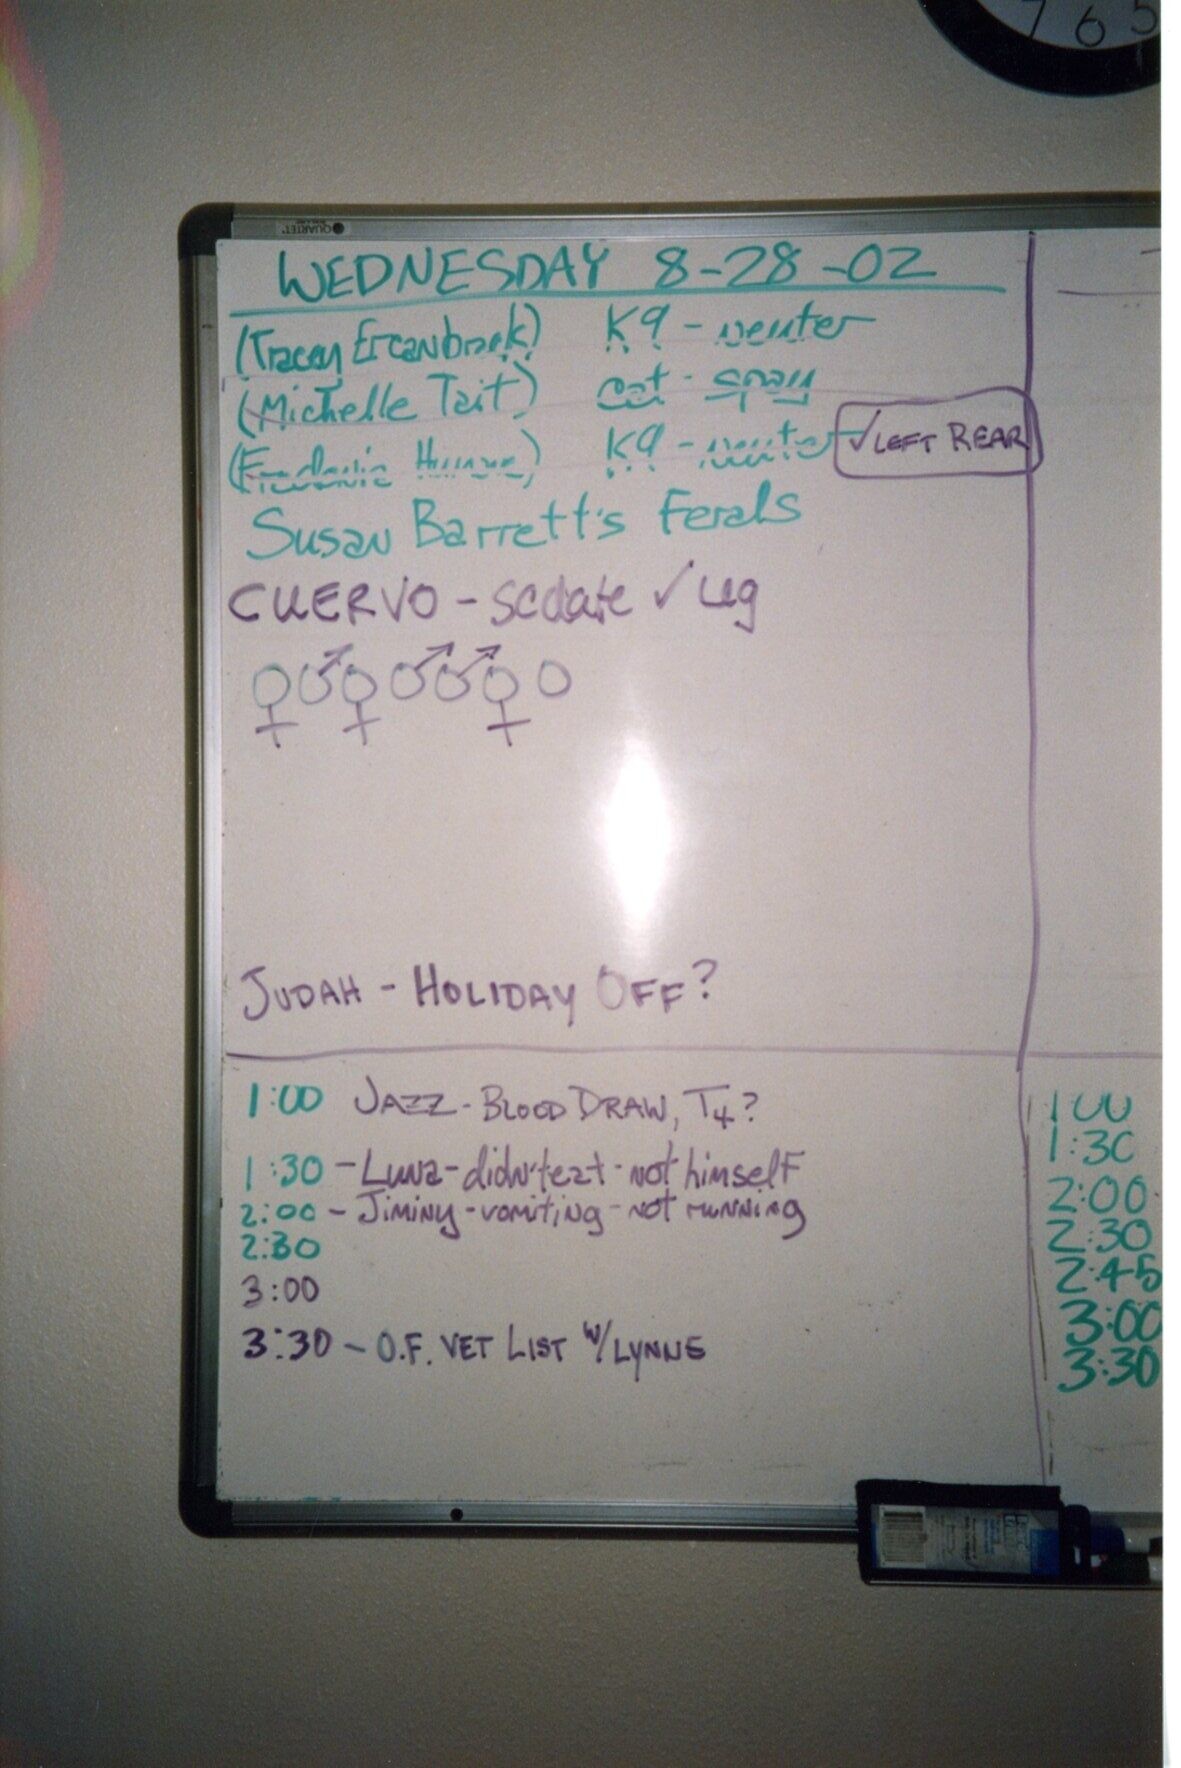 7 6 5
QUARTET
WEDNESDAY 8-28-02
(Tracey Ercanbrack) K9 - neuter
(Michelle Tait) cat - spay
K9 - neuter ✓LEFT REAR
Susan Barrett's Ferals
CUERVO - sedate ✓ leg
♀♂♀♂♂♀O
JUDAH - HOLIDAY OFF?
1:00 JAZZ - BLOOD DRAW, T4?
1:30 - Luna - didn't eat - not himself
2:00 - Jiminy - vomiting - not running
2:30
3:00
3:30 - O.F. VET LIST W/LYNNE
1 00
1:30
2:00
2:30
2:45
3:00
3:30